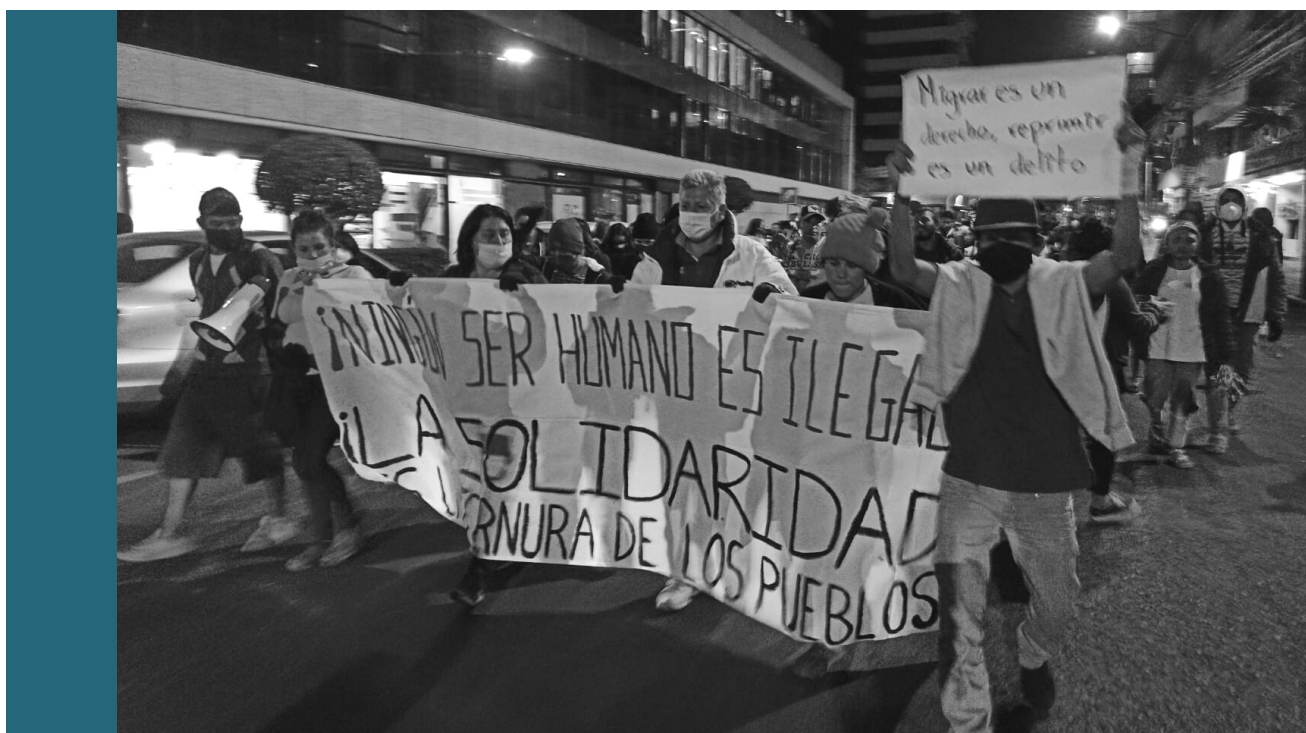 Migrar es un
derecho, reprimir
es un delito
¡NINGÚN SER HUMANO ES ILEGAL
¡LA SOLIDARIDAD
ERNURA DE LOS PUEBLOS